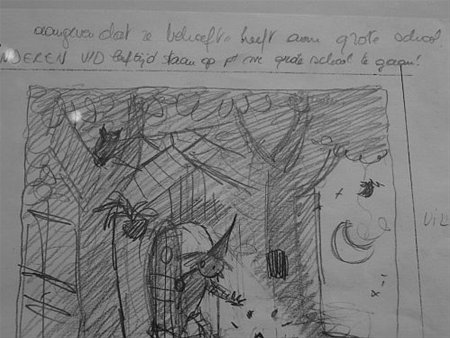 aangeven dat ze behoefte heeft aan grote school
NDEREN V/D leeftijd staan op pt nr grote school te gaan!